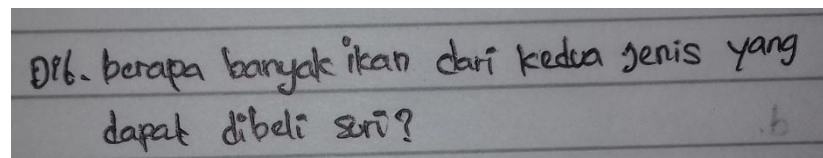 Dit. berapa banyak ikan dari kedua jenis yang
dapat dibeli suri?